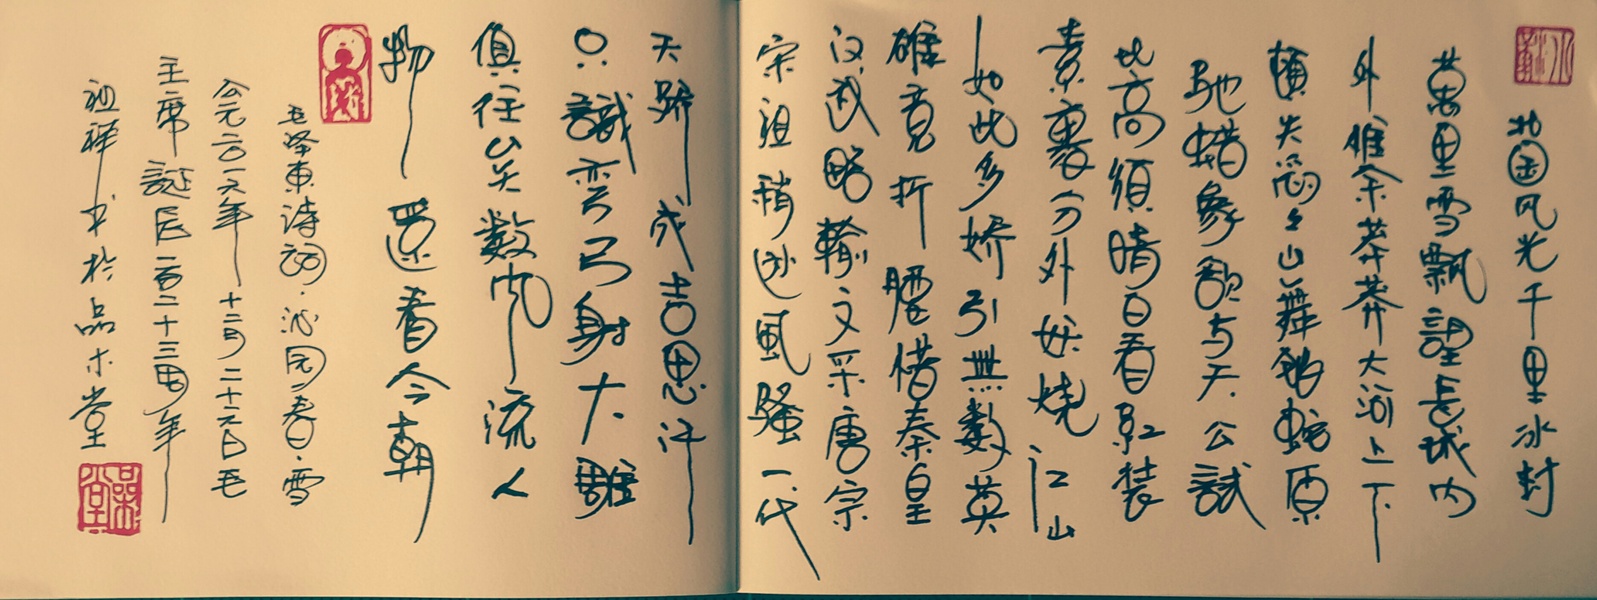 北国风光千里冰封
萬里雪飄望長城内
外惟余莽莽大河上下
頓失滔滔山舞銀蛇原
馳蜡象欲与天公試
比高須晴日看紅装
素裹分外妖燒江山
如此多娇引無数英
雄竞折腰惜秦皇
汉武略輸文采唐宗
宋祖稍逊風騷一代
天骄成吉思汗
只識弯弓射大雕
俱往矣数风流人
物還看今朝
毛泽東诗詞·沁园春·雪
公元二〇一六年十二月二十六日毛
主席誕辰一百二十三周年
祖祥书於品木堂